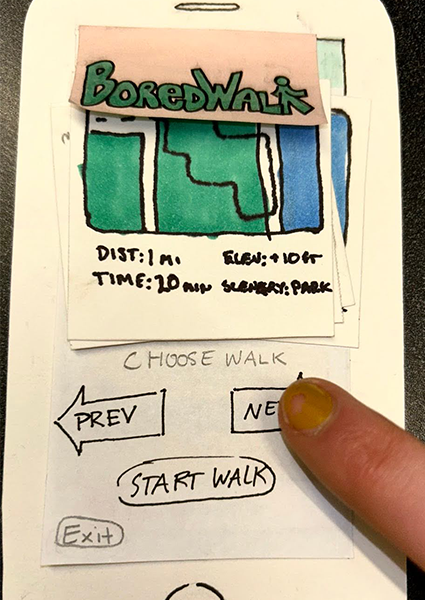 BOREDWALK
DIST: 1 MI ELEV: +10 FT
TIME: 20 MIN SCENERY: PARK
CHOOSE WALK
PREV NE
START WALK
Exit